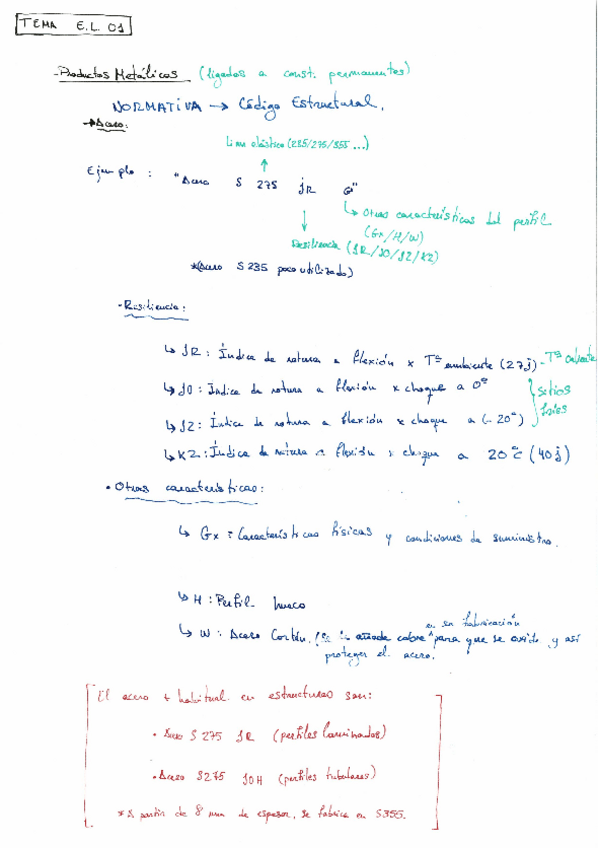 TEMA E.L. 01
- Productos Metálicos (ligados a const. permanentes)
NORMATIVA → Código Estructural.
→ Acero:
Lim elástico (235/275/355 ...)
Ejemplo : "Acero S 275 JR G"
↳ Otras características del perfil
(Gx/H/W)
Resiliencia (JR/J0/J2/K2)
*(Acero S235 poco utilizado)
- Resiliencia:
↳ JR : Índice de rotura a flexión x Tª ambiente (27j) - Tª caliente
↳ J0 : Índice de rotura a flexión x choque a 0º
sitios fríos
↳ J2 : Índice de rotura a flexión x choque a (-20º)
↳ K2 : Índica de rotura a flexión x choque a 20ºC (40j)
• Otras características:
↳ Gx : Características físicas y condiciones de suministro.
↳ H : Perfil hueco
en su fabricación
↳ W : Acero Cortén. (se le añade cobre para que se oxide y así
proteger el acero.
El acero + habitual en estructuras son:
• Acero S 275 JR (perfiles laminados)
• Acero S275 J0H (perfiles tubulares)
* A partir de 8 mm de espesor, se fabrica en S355.